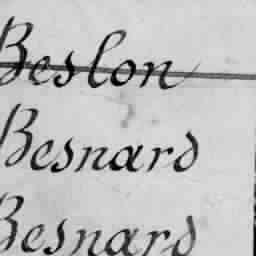 Beslon
Besnard
Besnard